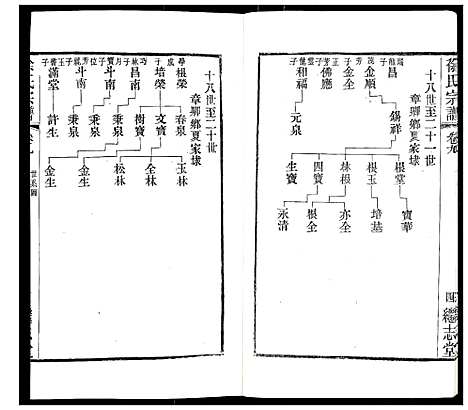 徐氏宗譜 卷九
四 戀志堂
十八世至二十一世
章卿鄉夏家埭
能昌
茂子 金順
子 金全
芳子 佛應
龍子 和雲
錫祥
元泉
根堂
根玉
林根
四寶
生寶
寶華
培基
亦全
根全
永清
十八世至二十世
章卿鄉夏家埭
學成子 根榮
子 培榮
巧林子 昌南
寶子 斗南
芳子 斗南
玉子 滿堂
春泉
文寶
樹寶
秉泉
秉泉
許生
玉林
全林
松林
金生
金生
世系圖